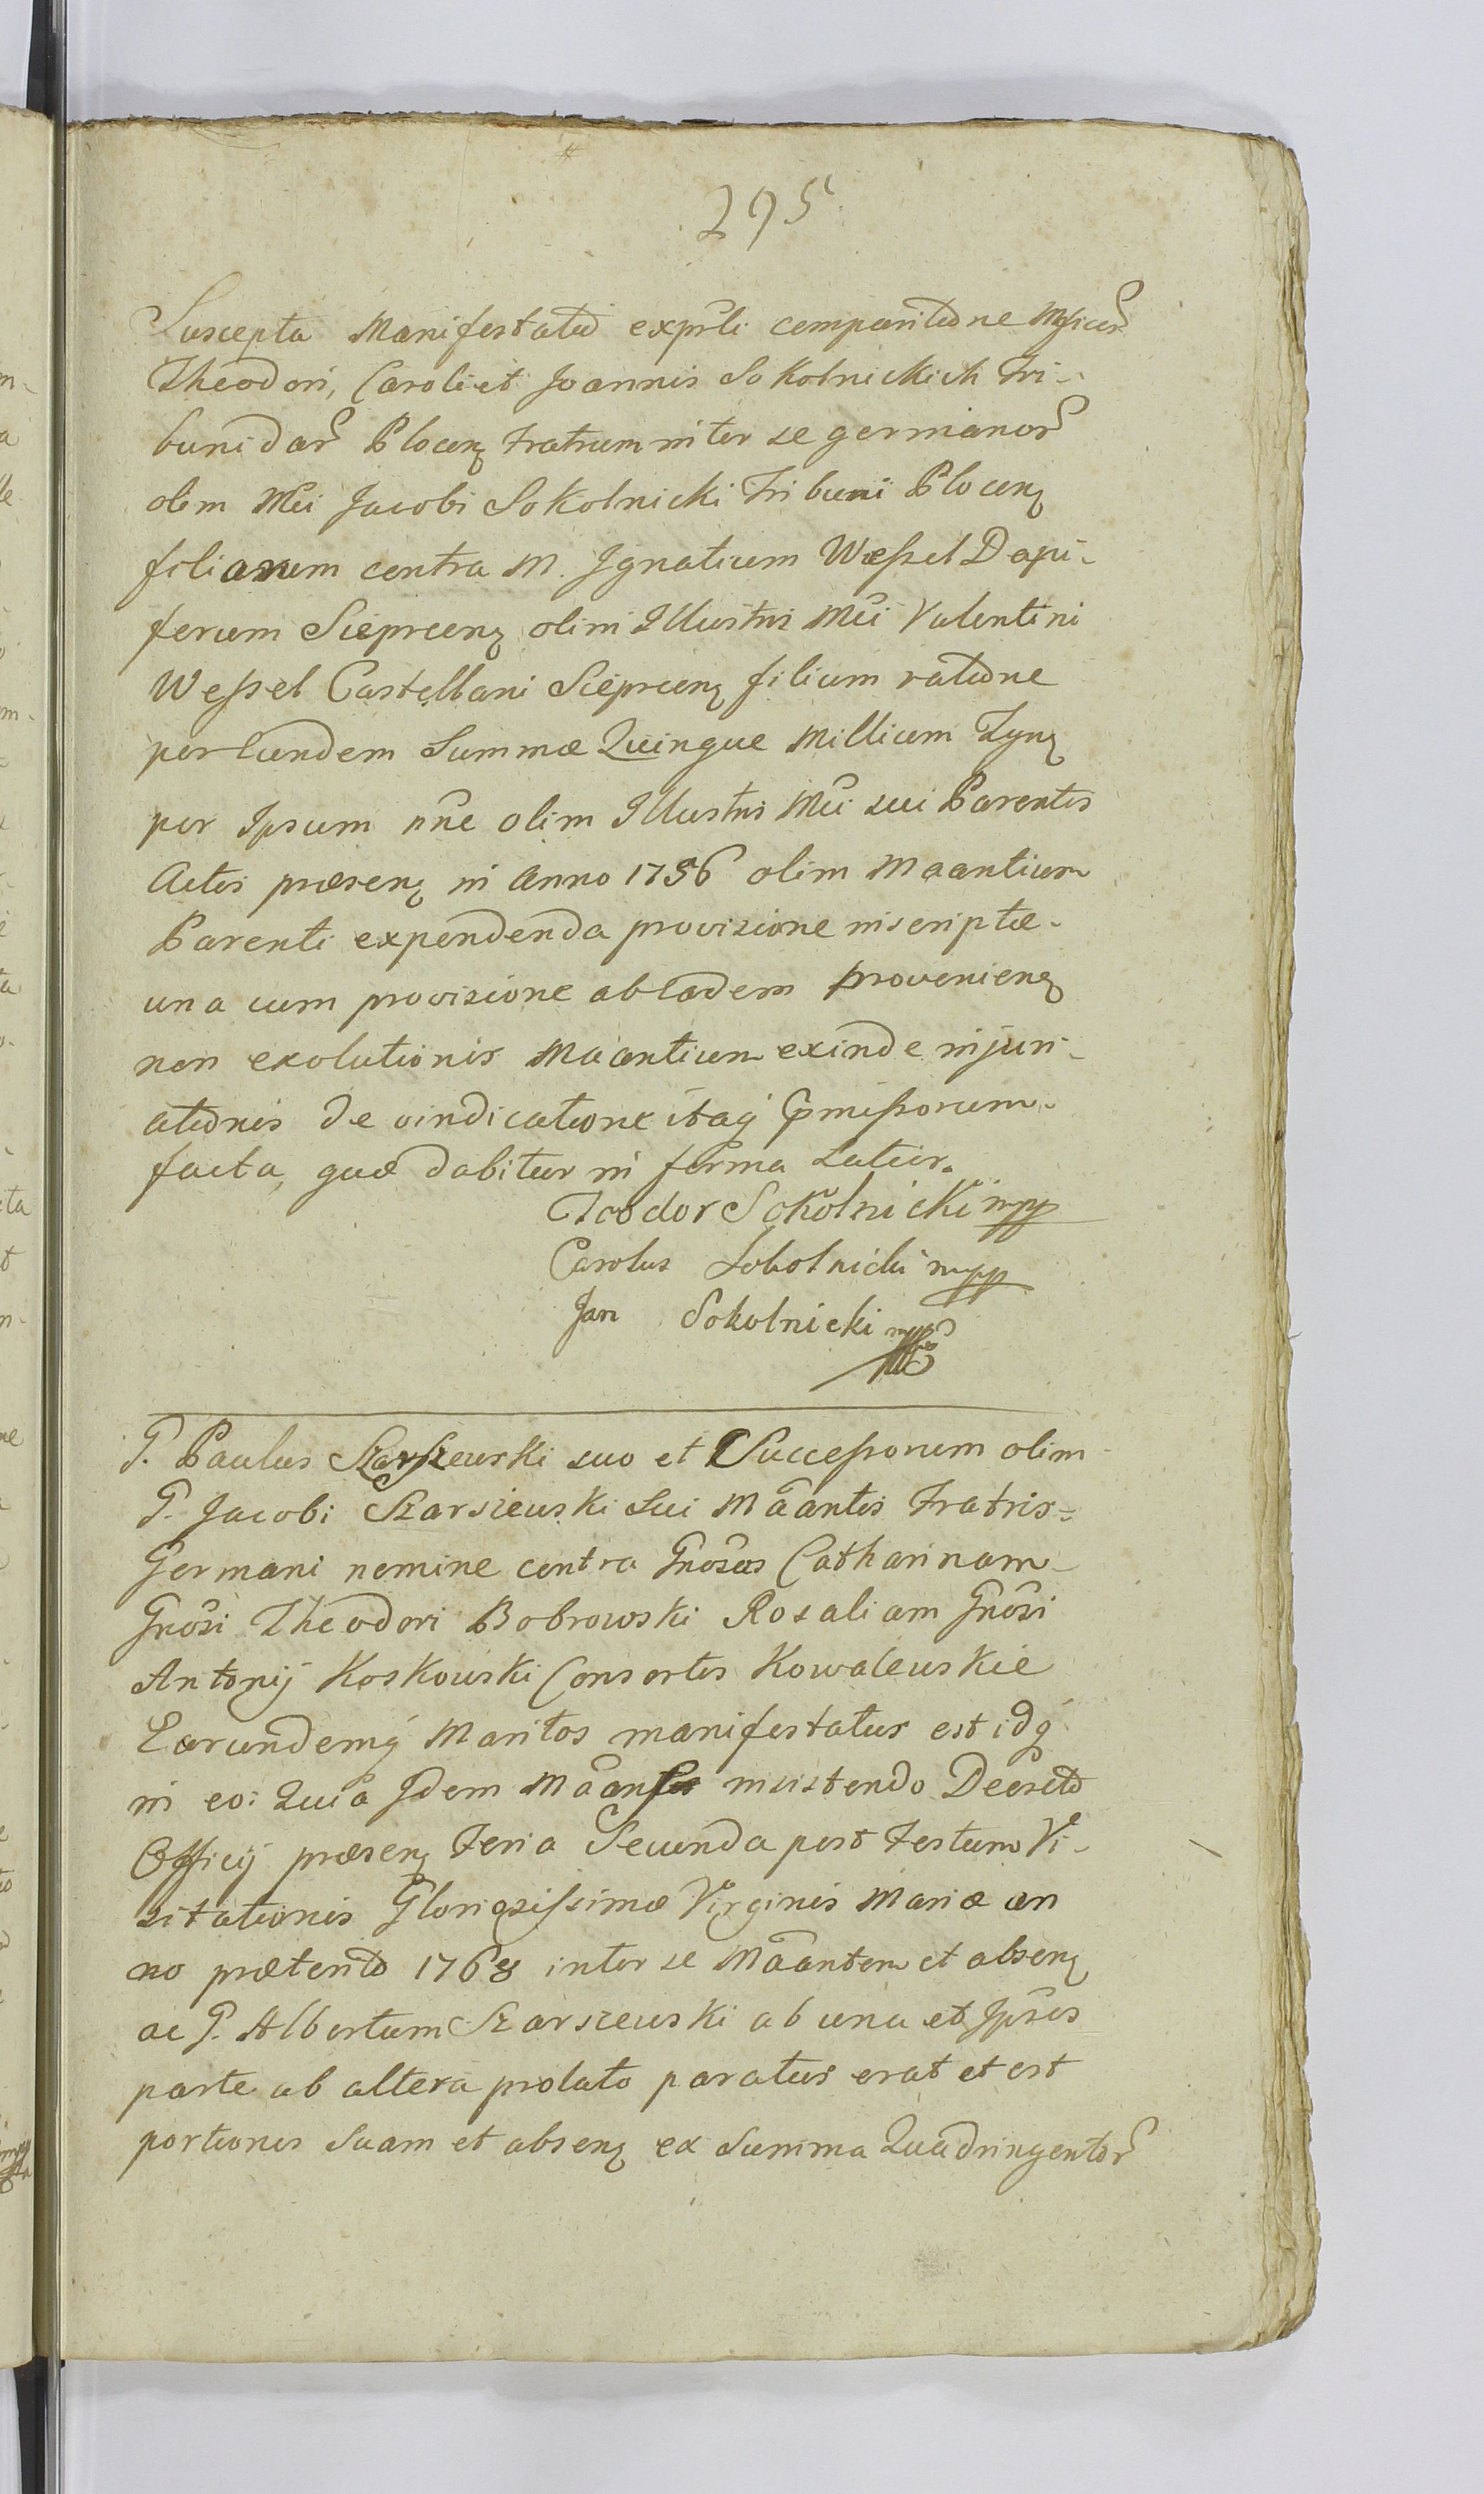 295
Suscepta Manifestatio exp̃sli comparitione Mgficor̃
Theodori, Caroli et Joannis Sokolnickich Tri-
bunidar̃ Plocenȝ Fratrum inter se germanor̃
olim Mci Jacobi Sokolnicki Tribuni Plocenȝ
filiorum contra M. Ignatium Wessel Dapi-
ferum Sieprcenȝ olim Illustris Mci Valentini
Wessel Castellani Sieprcenȝ filium ratione
per Eundem Summæ Quinque Millium Tynȝ
per Ipsum nñe olim Illustris Mci sui Parentis
Actis præsenȝ in Anno 1756 olim Maantium
Parenti expendenda provisione inscriptæ.
una cum provisione ab eadem provenienȝ
non exolutionis Maantium exinde injuri-
ationis de vindicatione itaq̃ p̃missorum
facta, quæ dabitur in forma Latior.
Teodor Sokolnicki mpp
Carolus Sokolnicki mpp
Jan Sokolnicki mpp
G. Paulus Szarszewski suo et Successorum olim
G. Jacobi Szarszewski Sui Mãantis Fratris=
Germani nomine contra Gnosas Catharinam
Gnosi Theodori Bobrowski Rosaliam Gnosi
Antonij Koskowski Consortes Kowalewskie
Earundemq̃ Maritos manifestatus est idq̃
in eo: Quia Idem Mãans insistendo Decreto
Officij præsenȝ Feria Secunda post Festum Vi-
sitationis Gloriosissimæ Virginis Mariæ an
no præterito 1768 inter se Mãantem et absenȝ
ac G. Albertum Szarszewski ab una et Ipsos
parte ab altera prolato paratus erat et est
portiones Suam et absenȝ ex Summa Quadringentor̃